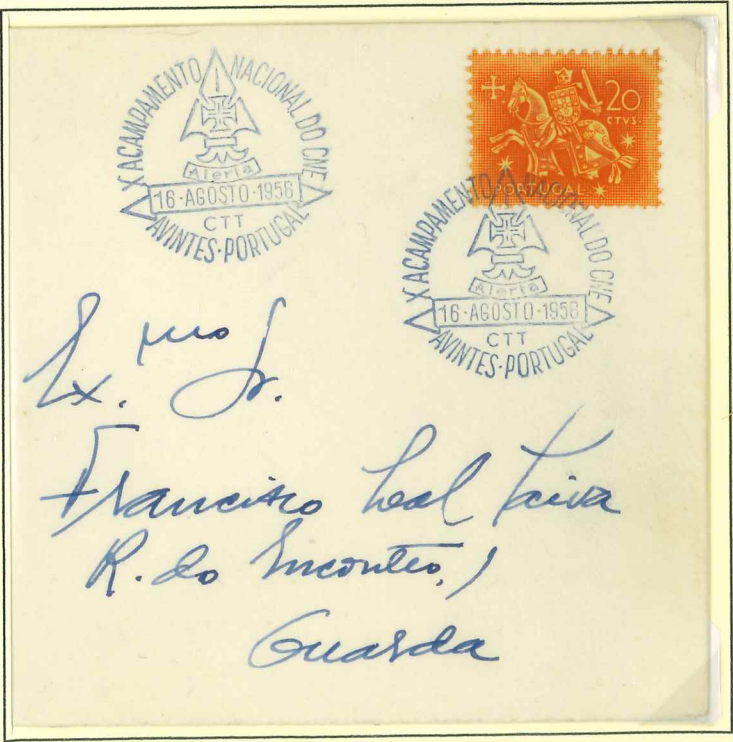 X ACAMPAMENTO NACIONAL DO CNE
Alerta
16·AGOSTO·1956
CTT
AVINTES·PORTUGAL
20
CTVS.
PORTUGAL
X ACAMPAMENTO NACIONAL DO CNE
Alerta
16·AGOSTO·1956
CTT
AVINTES·PORTUGAL
Ex.mo Sr.
Francisco Leal Paiva
R. do Encontro, 1
Guarda